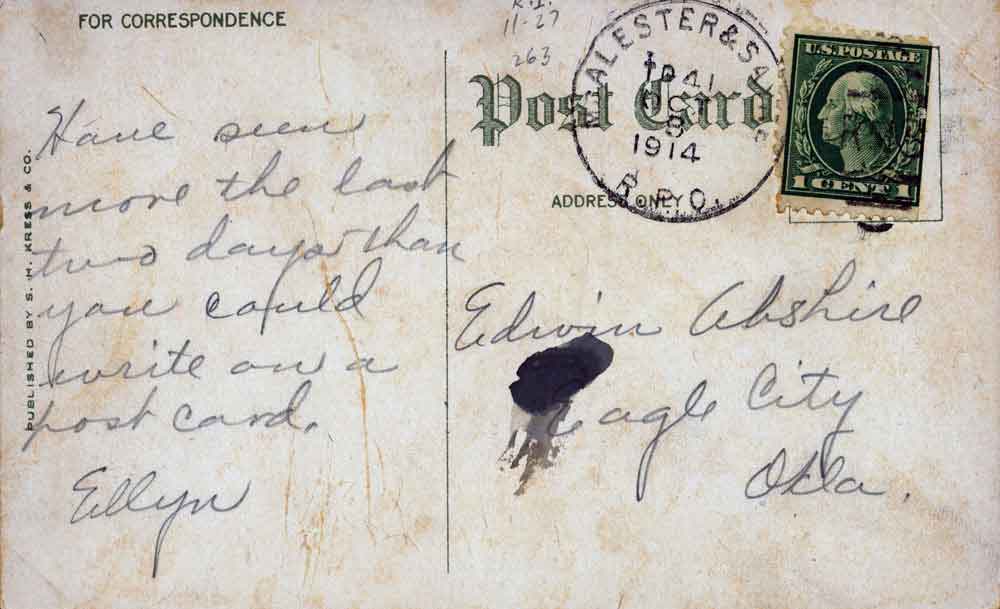 FOR CORRESPONDENCE
Have seen
more the last
two days than
you could
write on a
post card.
Ellyn
PUBLISHED BY S. H. KRESS & CO.
11-27
263
Post Card
ADDRESS ONLY
ALESTER &
1914
R.P.O.
U.S. POSTAGE
1 CENT 1
Edwin Abshire
Eagle City
Okla.